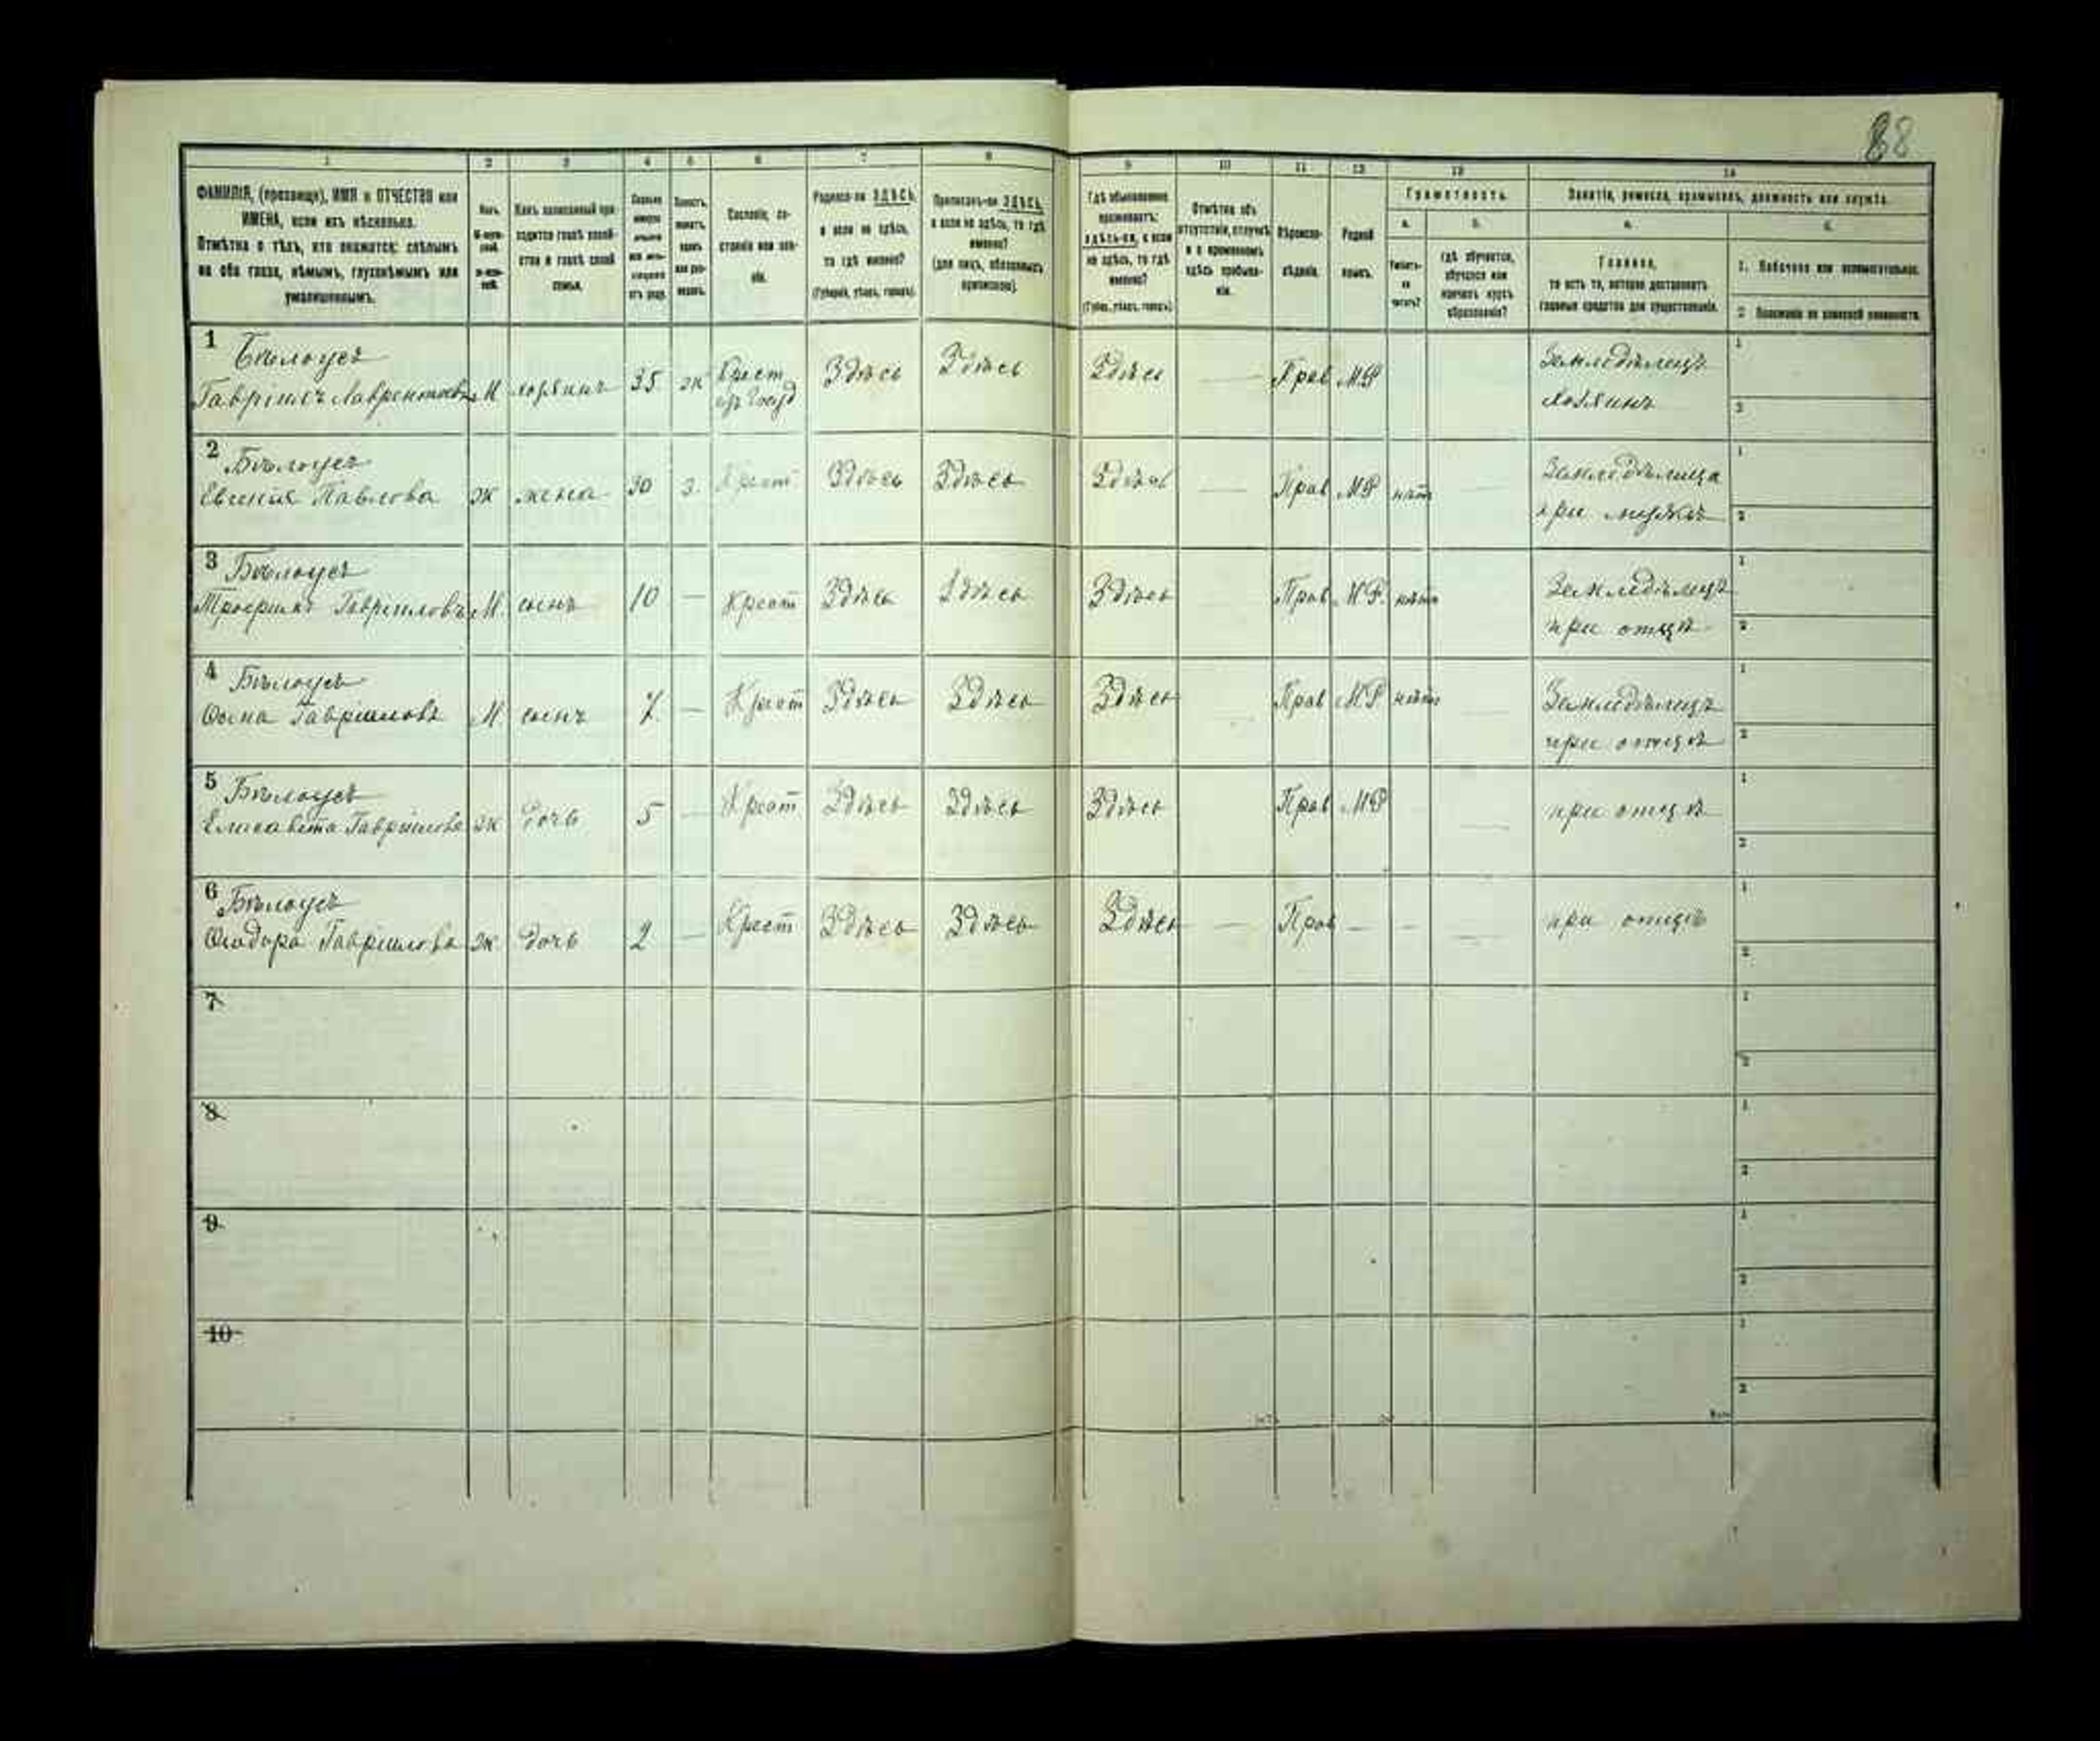 88
1 2 3 4 5 6 7 8 9 10 11 12 13 14
ФАМИЛІЯ, (прозвище), ИМЯ и ОТЧЕСТВО или
ИМЕНА, если ихъ нѣсколько.
Отмѣтка о тѣхъ, кто окажется: слѣпымъ
на оба глаза, нѣмымъ, глухонѣмымъ или
умалишеннымъ.
Какъ записанный при-
ходится главѣ хозяй-
ства и главѣ своей
семьи.
Сословіе, со-
стояніе или зва-
ніе.
Родился-ли ЗДѢСЬ,
а если не здѣсь,
то гдѣ именно?
(Губернія, уѣздъ, городъ).
Приписанъ-ли ЗДѢСЬ,
а если не здѣсь, то гдѣ
именно?
(для лицъ, обязанныхъ
припискою).
Гдѣ обыкновенно
проживаетъ:
здѣсь-ли, а если
не здѣсь, то гдѣ
именно?
(Губер., уѣздъ, городъ).
Отмѣтка объ
отсутствіи, отлучкѣ
и о временномъ
здѣсь пребыва-
ніи.
Вѣроиспо-
вѣданіе.
Родной
языкъ.
Грамотность.
а. б.
Умѣетъ-
ли
читать?
гдѣ обучается,
обучался или
кончилъ курсъ
образованія?
Занятіе, ремесло, промыселъ, должность или служба.
а. б.
Главное,
то есть то, которое доставляетъ
главныя средства для существованія.
1. Побочное или вспомогательное.
2. Положеніе по воинской повинности.
1 Бѣлоусъ
Гавріилъ Лаврентьевъ М хозяинъ 35 ж Крест Здѣсь Здѣсь Здѣсь — Прав М.Р Земледѣлецъ 1
хозяинъ 2
2 Бѣлоусъ
Евгенія Павлова ж жена 30 з. Крест Здѣсь Здѣсь Здѣсь — Прав МР нѣтъ — Земледѣлица 1
при мужѣ 2
3 Бѣлоусъ
Трофимъ Гавріиловъ М сынъ 10 — Крест Здѣсь Здѣсь Здѣсь — Прав М.Р. нѣтъ Земледѣлецъ 1
при отцѣ 2
4 Бѣлоусъ
Осипъ Гавріиловъ М сынъ 7. — Крест Здѣсь Здѣсь Здѣсь Прав М.Р нѣтъ — Земледѣлецъ 1
при отцѣ 2
5 Бѣлоусъ
Елисавета Гавріилова ж дочь 5 — Крест Здѣсь Здѣсь Здѣсь Прав МР — при отцѣ 1
2
6 Бѣлоусъ
Феодора Гавріилова ж дочь 2 — Крест Здѣсь Здѣсь Здѣсь — Прав — — — при отцѣ 1
2
7 1
2
8 1
2
9 1
2
10 1
2